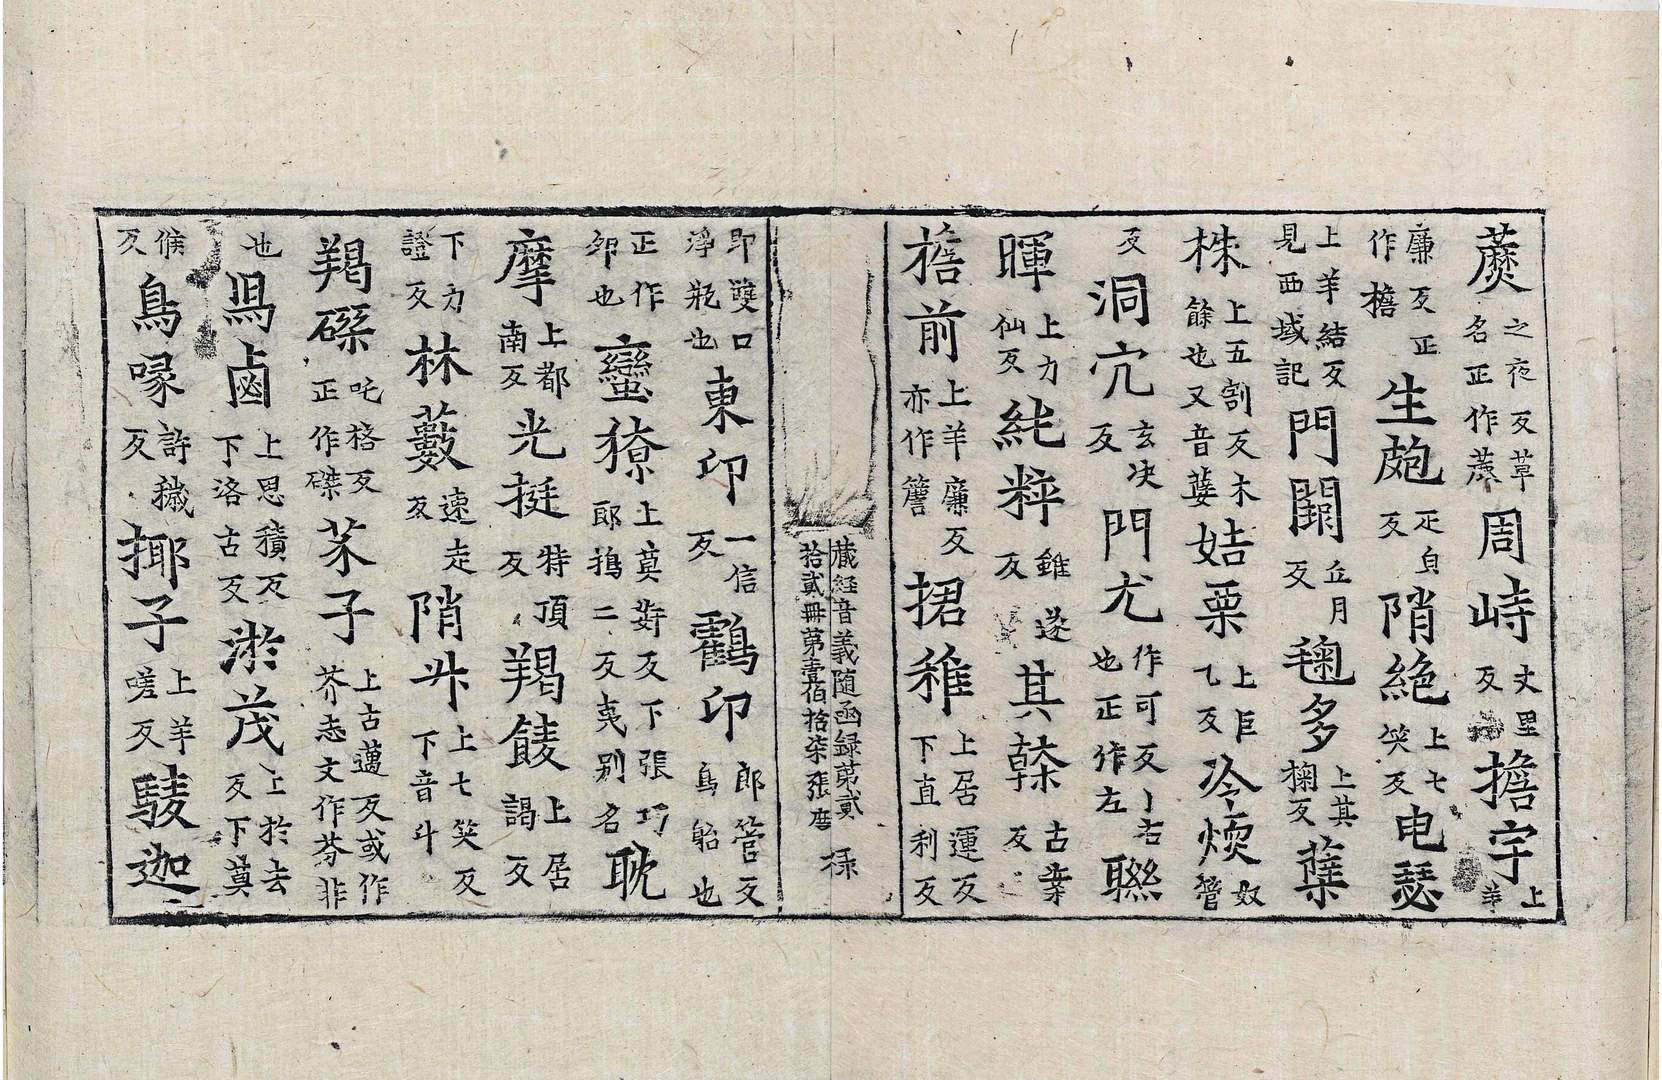 蔗之夜反草名正作蔗周峙丈里反擔宇上羊
廉反正作檐生皰疋皃反陗絶上七笑反电瑟
上羊結反見西域記門閫丘月反毱多上其掬反蘖
株上五割反木餘也又音蘖姞栗上巨乙反冷煗奴管
反洞穴玄決反門尤作可反丨右也正作左聯
暉上力仙反純粹雖遂反其榦古案反
檐前上羊廉反亦作簷捃稚上居運反下直利反
藏経音義隨函録第貳拾貳冊第壹伯拾柒張磨 禄
即雙口淨瓶也東卬一信反鸖卬郎管反鳥貽也
正作卵也蠻獠上莫姧反下張巧郎鳩二反夷别名耽
摩上都南反光挺特頂反羯𩜁上居謁反
下力證反林藪速走反陗斗上七笑反下音斗
羯磔吒格反正作磔芥子上古邁反或作芥志文作芬非
也舄鹵上思積反下洛古反淤茂上於去反下莫
候反鳥喙許穢反揶子上羊嗟反騬迦